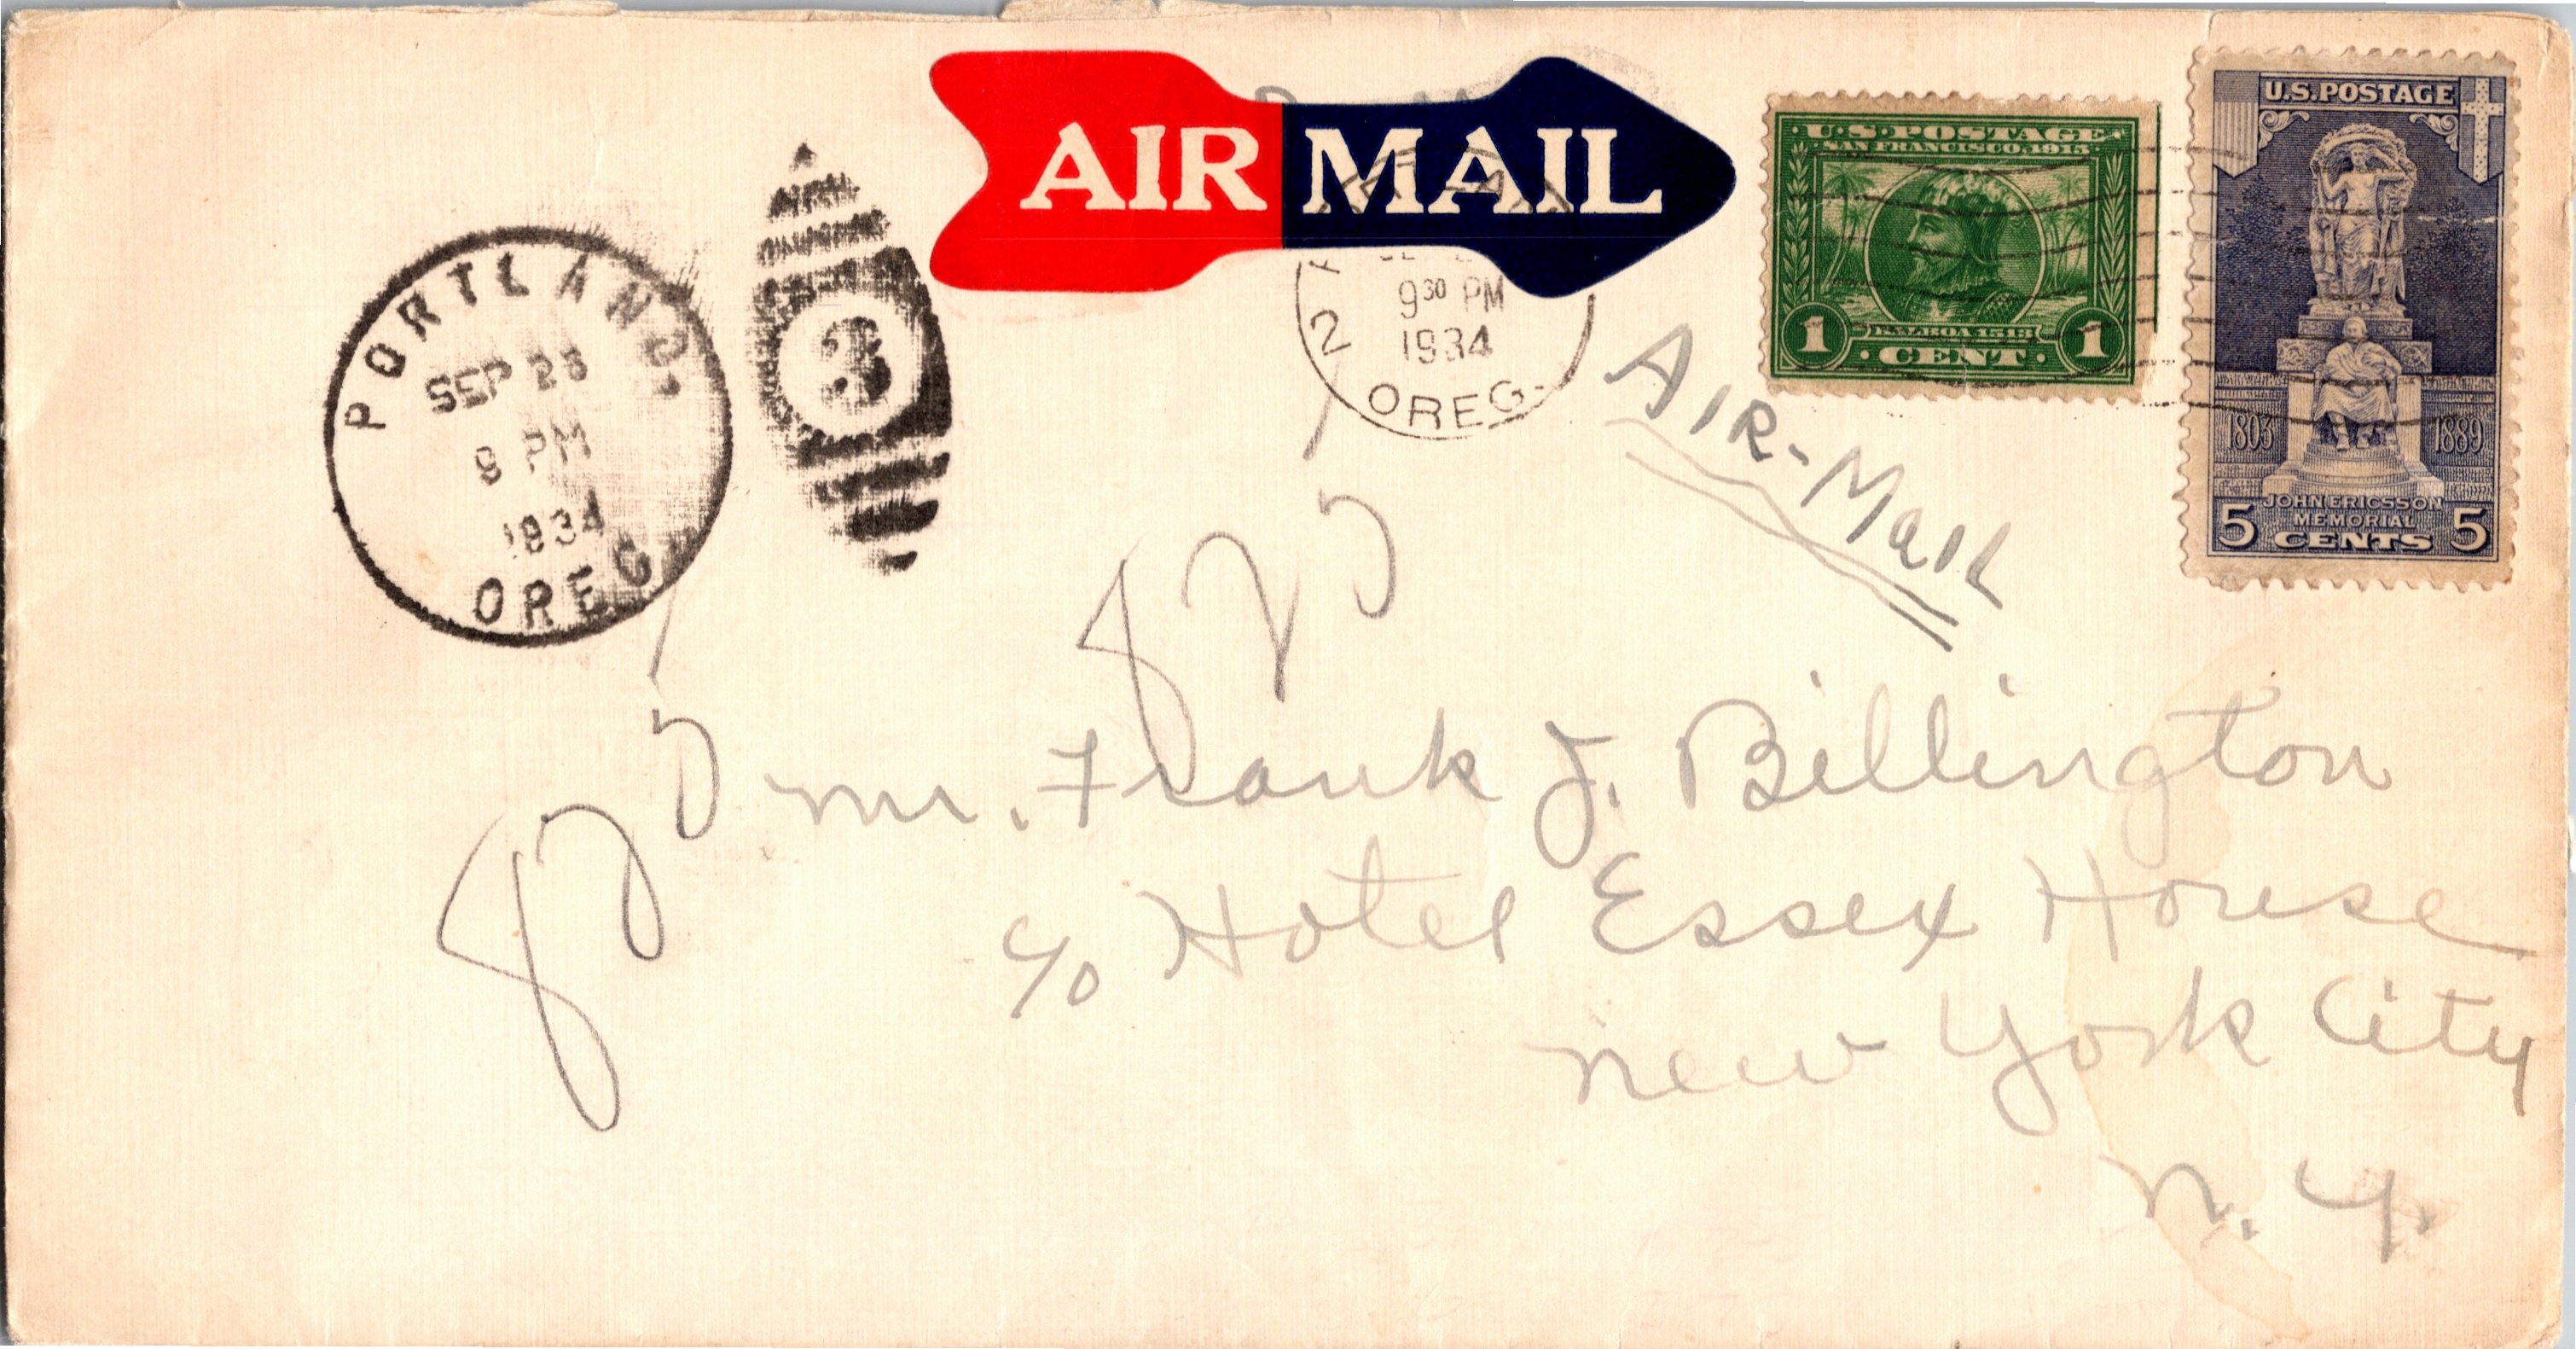 AIR MAIL
PORTLAND,
SEP
PM
1934
OREG.
3
2
9 30 PM
1934
OREG.
U.S. POSTAGE
SAN FRANCISCO, 1915
1 BALBOA 1513 1
CENT
U.S. POSTAGE
1803 1889
JOHN ERICSSON
MEMORIAL
5 CENTS 5
AIR-MAIL
825
825
Mr. Frank J. Billington
c/o Hotel Essex House
New York City
N.Y.